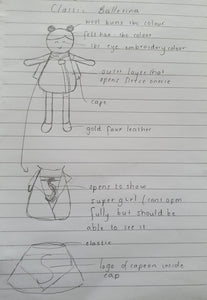 Classic Ballerina
wool buns tbc colour
felt hair tbc colour
tbc eye embroidery colour
outer layer that
opens
cape
gold faux leather
opens to show
super girl / cant open
fully but should be
able to see it
classic
logo of cape on inside
cap